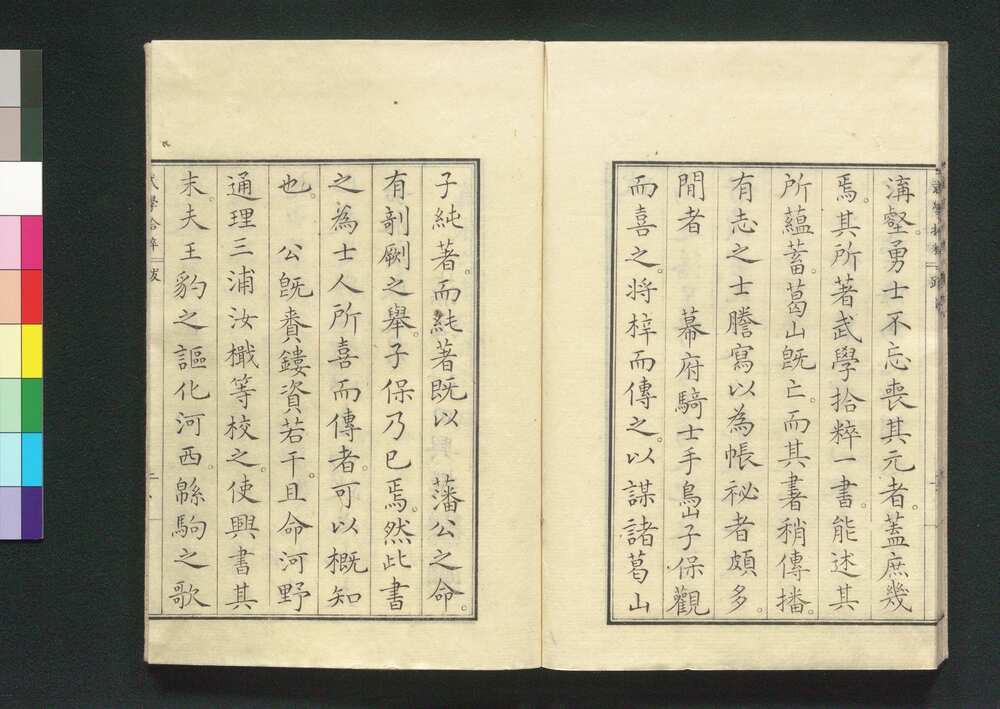 溝壑。勇士不忘喪其元者。蓋庶幾
焉。其所著武學拾粹一書。能述其
所蘊蓄。葛山既亡。而其書稍傳播。
有志之士謄寫以為帳祕者頗多。
閒者　幕府騎士手島山子保觀
而喜之。将梓而傳之。以謀諸葛山
子純著。而純著既以　藩公之命。
有剞劂之舉。子保乃已焉。然此書
之為士人所喜而傳者。可以概知
也。　公既賚鏤資若干。且命河野
通理三浦汝檝等校之。使興書其
末。夫王豹之謳化河西。緜駒之歌
武學拾粹　跋